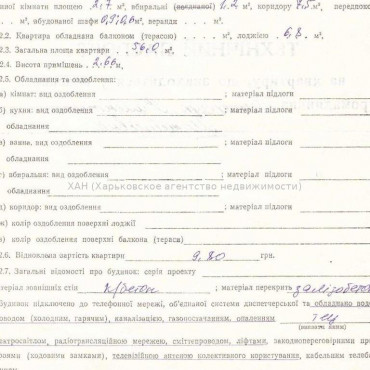 ної кімнати площею 2.7 м², вбиральні (        ) 1.2 м², коридору       м², передпокою
. . м², вбудованої шафи 0,9; 0,6 м², веранди . . м².
2.2. Квартира обладнана балконом (терасою) . . . . м², лоджією 6,8. м².
2.3. Загальна площа квартири . . 56,0 . м².
2.4. Висота приміщень . 2,66 м.
2.5. Обладнання та оздоблення:
а) кімнат: вид оздоблення ; матеріал підлоги
б) кухня: вид оздоблення ; матеріал підлоги
обладнання
в) ванна: вид оздоблення ; матеріал підлоги
обладнання
г) вбиральня: вид оздоблення ; матеріал підлоги
обладнання
ХАН (Харьковское агентство недвижимости)
д) коридор: вид оздоблення ; матеріал підлоги
обладнання
ж) колір оздоблення поверхні лоджії
з) колір оздоблення поверхні балкона (тераси)
2.6. Відновлювана вартість квартири 9,80 грн.
2.7. Загальні відомості про будинок: серія проекту
матеріал зовнішніх стін з/бетон ; матеріал перекриття залізобетон
будинок підключено до телефонної мережі, об'єднаної системи диспетчерської та обладнано водо-
проводом (холодним, гарячим), каналізацією, газопостачанням, опаленням ТЕЦ
(вказати яким)
електросвітлом, радіотрансляційною мережею, сміттєпроводом, ліфтами, законопереговорними при-
строями (кодовими замками), телевізійною антеною колективного користування, кабельним телеба-
ченням.